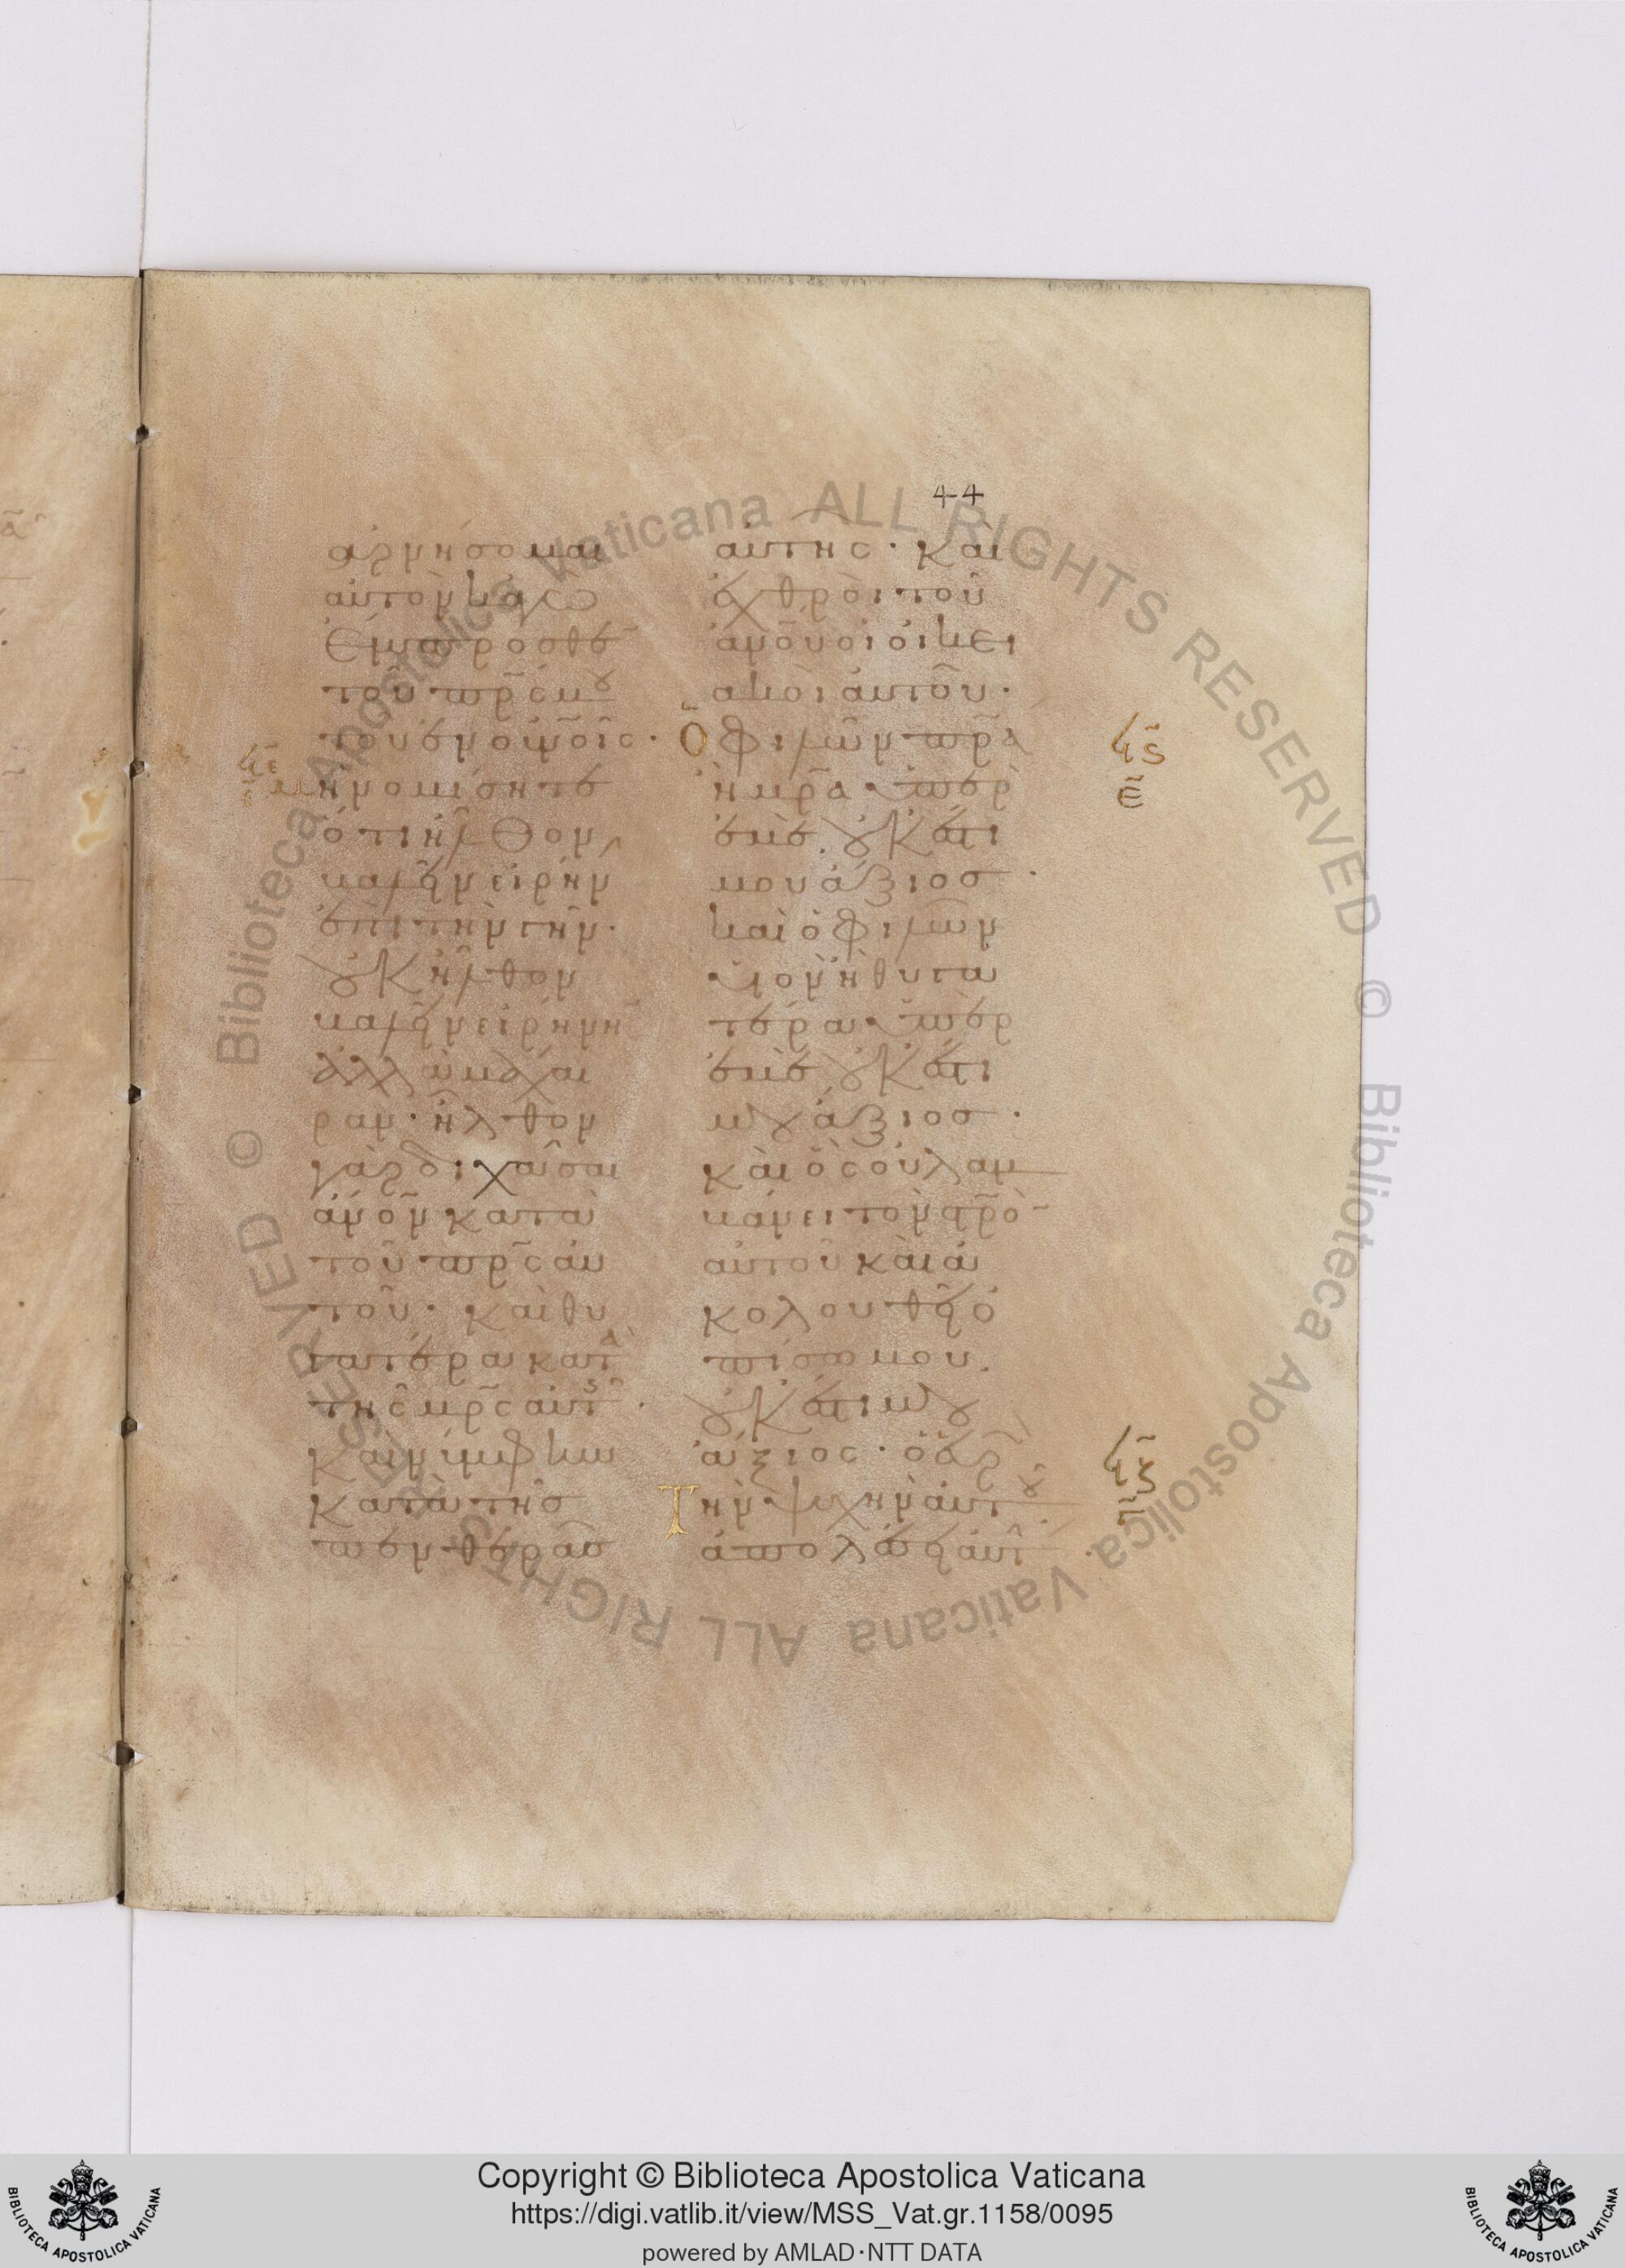 44
ἀρνήσομαι
αὐτὸν κἀγὼ
ἔμπροσθε
τοῦ πρς μου
τοῦ ἐν οὐνοῖς·
μὴ νομίσητε
ὅτι ἦλθον
βαλεῖν εἰρήνην
ἐπὶ τὴν γῆν·
οὐκ ἦλθον
βαλεῖν εἰρήνην
ἀλλὰ μάχαι
ραν· ἦλθον
γὰρ διχάσαι
ἄνον κατὰ
τοῦ πρς αὐ
τοῦ· καὶ θυ
γατέρα κατὰ
τῆς μρς αὐτῆς·
καὶ νύμφην
κατὰ τῆς
πενθερᾶς
αὐτῆς· καὶ
ἐχθροὶ τοῦ
ἀνου οἱ οἰκει
ακοὶ αὐτοῦ·
Ὁ φιλῶν πρα
ἢ μρα ὑπὲρ
ἐμὲ οὐκ ἔστι
μου ἄξιος·
καὶ ὁ φιλῶν
υἱὸν ἢ θυγα
τέρα ὑπὲρ
ἐμὲ οὐκ ἔστι
μου ἄξιος·
καὶ ὃς οὐ λαμ
βάνει τὸν στρον
αὐτοῦ καὶ ἀ
κολουθεῖ ὀ
πίσω μου
οὐκ ἔστι μου
ἄξιος· ὁ εὑρὼν
Τὴν ψυχὴν αὐτοῦ
ἀπολέσει αὐτήν·
Copyright © Biblioteca Apostolica Vaticana
https://digi.vatlib.it/view/MSS_Vat.gr.1158/0095
powered by AMLAD·NTT DATA
BIBLIOTECA APOSTOLICA VATICANA
BIBLIOTECA APOSTOLICA VATICANA
© Biblioteca Apostolica Vaticana ALL RIGHTS RESERVED
© Biblioteca Apostolica Vaticana ALL RIGHTS RESERVED